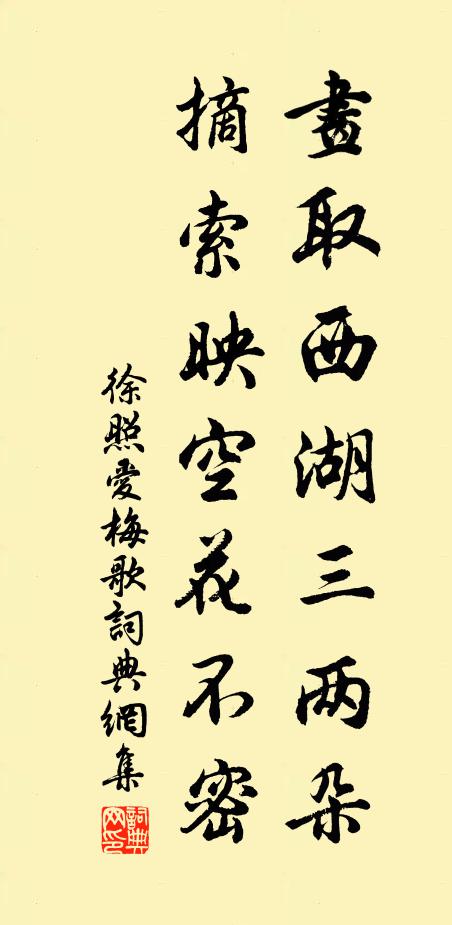 畫取西湖三两朵
摘索映空花不密
徐照愛梅歌詞典網集
詞典网印